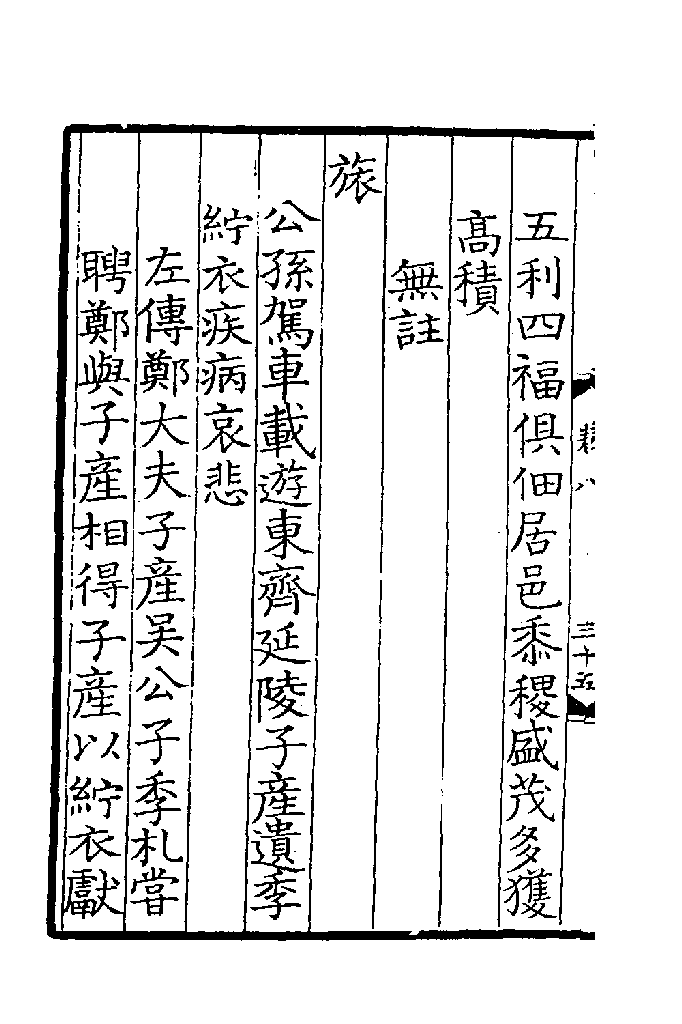 五利四福俱佃居邑黍稷盛茂多獲
高積
無註
旅
公孫駕車載遊東齊延陵子產遺季
紵衣疾病哀悲
左傳鄭大夫子產吴公子季札嘗
聘鄭與子產相得子產以紵衣獻
三十五